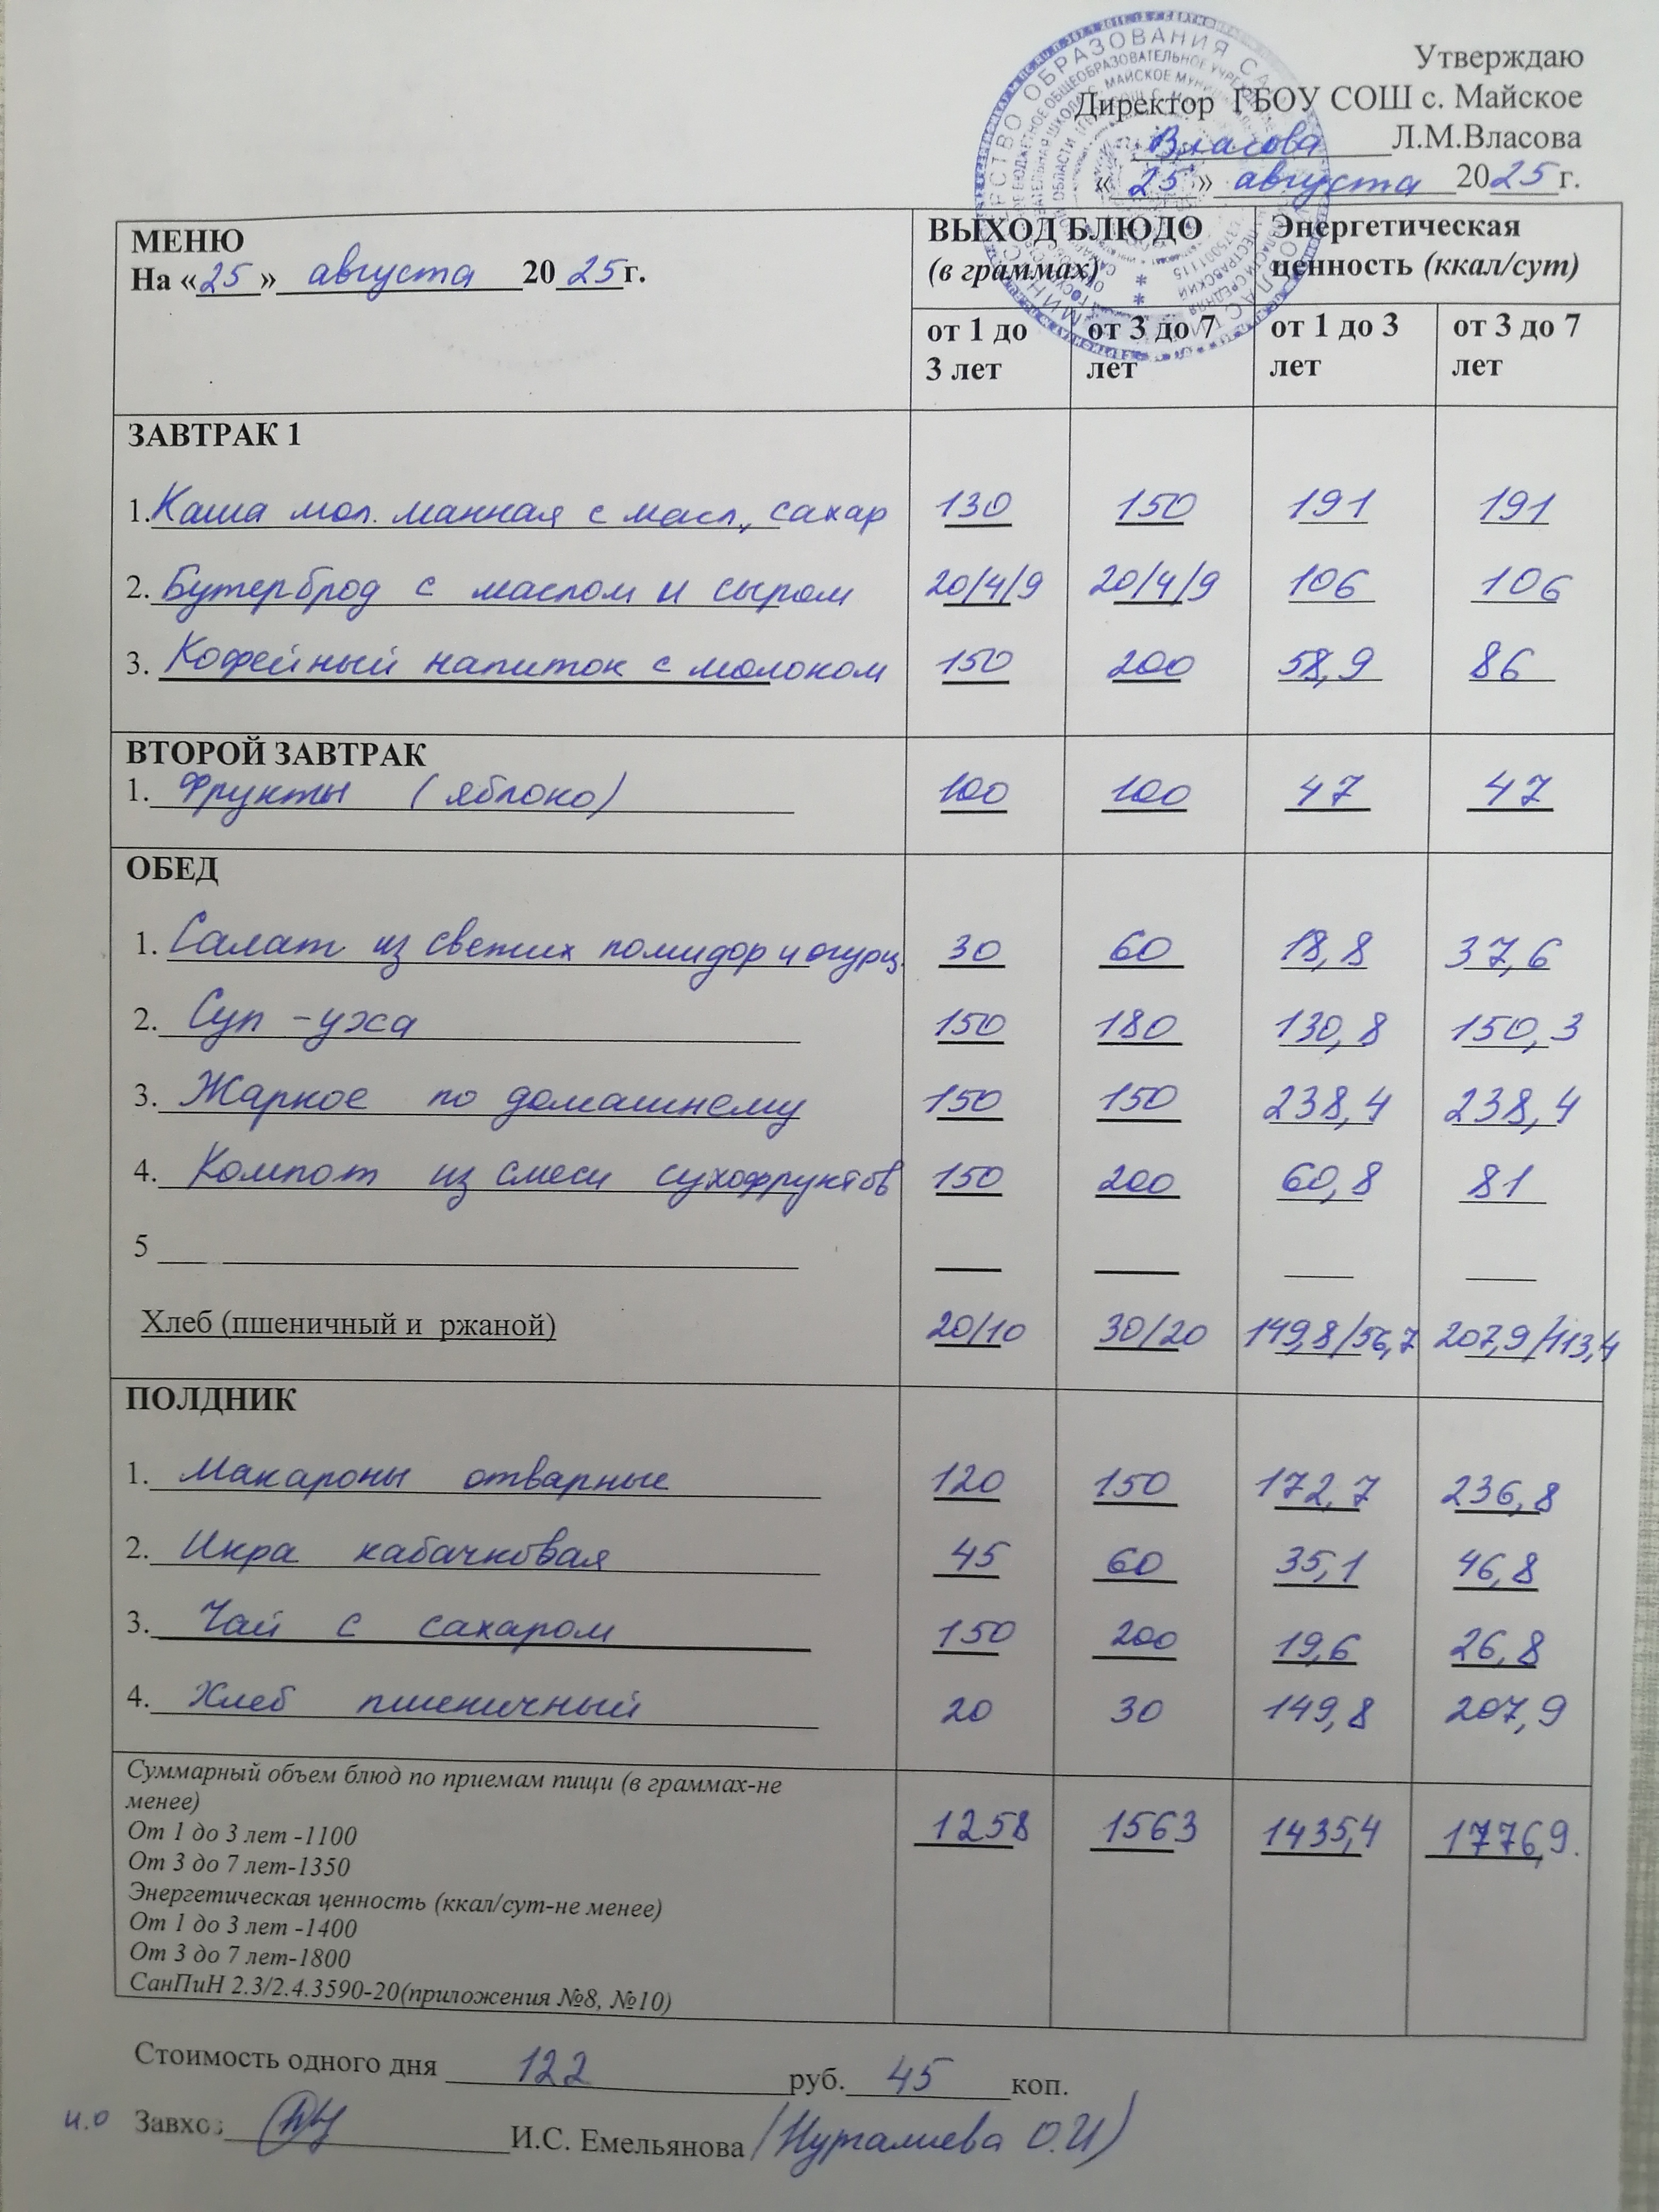 Утверждаю
Директор ГБОУ СОШ с. Майское
Власова Л.М.Власова
« 25 » августа 2025 г.
МЕНЮ
На « 25 » августа 20 25 г.
ВЫХОД БЛЮДО
(в граммах)
Энергетическая
ценность (ккал/сут)
от 1 до 3 лет от 3 до 7 лет от 1 до 3 лет от 3 до 7 лет
ЗАВТРАК 1
1. Каша мол. манная с масл, сахар 130 150 191 191
2. Бутерброд с маслом и сыром 20/4/9 20/4/9 106 106
3. Кофейный напиток с молоком 150 200 58,9 86
ВТОРОЙ ЗАВТРАК
1. Фрукты (яблоко) 100 100 47 47
ОБЕД
1. Салат из свежих помидор и огурц. 30 60 18,8 37,6
2. Суп -уха 150 180 130,8 150,3
3. Жаркое по домашнему 150 150 238,4 238,4
4. Компот из смеси сухофруктов 150 200 60,8 81
5
Хлеб (пшеничный и ржаной) 20/10 30/20 149,8/56,7 207,9/113,4
ПОЛДНИК
1. Макароны отварные 120 150 172,7 236,8
2. Икра кабачковая 45 60 35,1 46,8
3. Чай с сахаром 150 200 19,6 26,8
4. Хлеб пшеничный 20 30 149,8 207,9
Суммарный объем блюд по приемам пищи (в граммах-не
менее)
От 1 до 3 лет -1100
От 3 до 7 лет-1350
Энергетическая ценность (ккал/сут-не менее)
От 1 до 3 лет -1400
От 3 до 7 лет-1800
СанПиН 2.3/2.4.3590-20(приложения №8, №10)
1258 1563 1435,4 1776,9.
Стоимость одного дня 122 руб. 45 коп.
и.о Завхоз И.С. Емельянова (Нургалиева О.И)